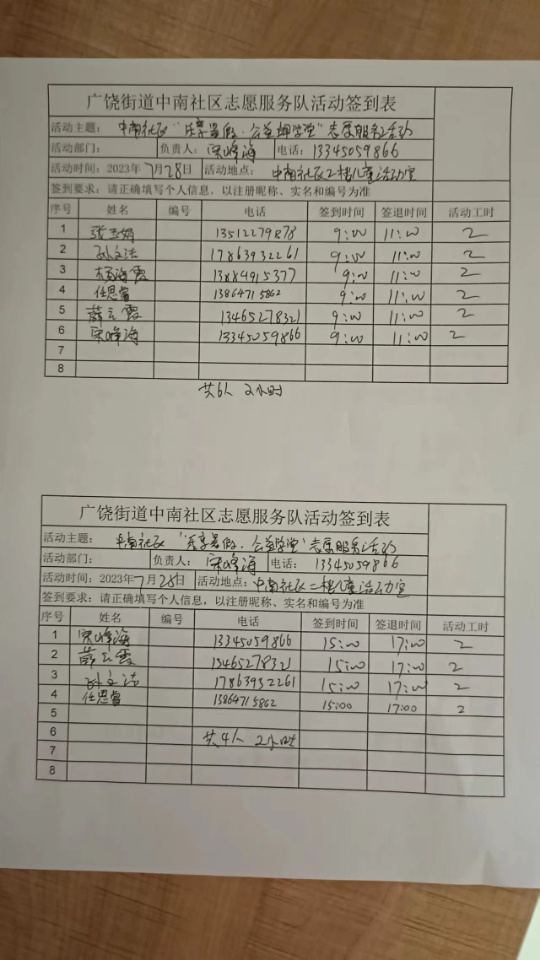 广饶街道中南社区志愿服务队活动签到表
活动主题: 中南社区“乐享暑假·公益课堂”志愿服务活动
活动部门: 负责人: 宋峰海 电话: 13345059866
活动时间: 2023年7月28日 活动地点: 中南社区二楼儿童活动室
签到要求: 请正确填写个人信息，以注册昵称、实名和编号为准
序号 姓名 编号 电话 签到时间 签退时间 活动工时
1 13512279878 9:00 11:00 2
2 孙文洁 17863932261 9:00 11:00 2
3 杨海霞 13884915377 9:00 11:00 2
4 任思睿 13864715862 9:00 11:00 2
5 薛元霞 13465278321 9:00 11:00 2
6 宋峰海 13345059866 9:00 11:00 2
7
8
共6人 2小时
广饶街道中南社区志愿服务队活动签到表
活动主题: 中南社区“乐享暑假·公益学堂”志愿服务活动
活动部门: 负责人: 宋峰海 电话: 13345059866
活动时间: 2023年7月28日 活动地点: 中南社区二楼儿童活动室
签到要求: 请正确填写个人信息，以注册昵称、实名和编号为准
序号 姓名 编号 电话 签到时间 签退时间 活动工时
1 宋峰海 13345059866 15:00 17:00 2
2 薛元霞 13465278321 15:00 17:00 2
3 孙文洁 17863932261 15:00 17:00 2
4 任思睿 13864715862 15:00 17:00 2
5
6 共4人 2小时
7
8